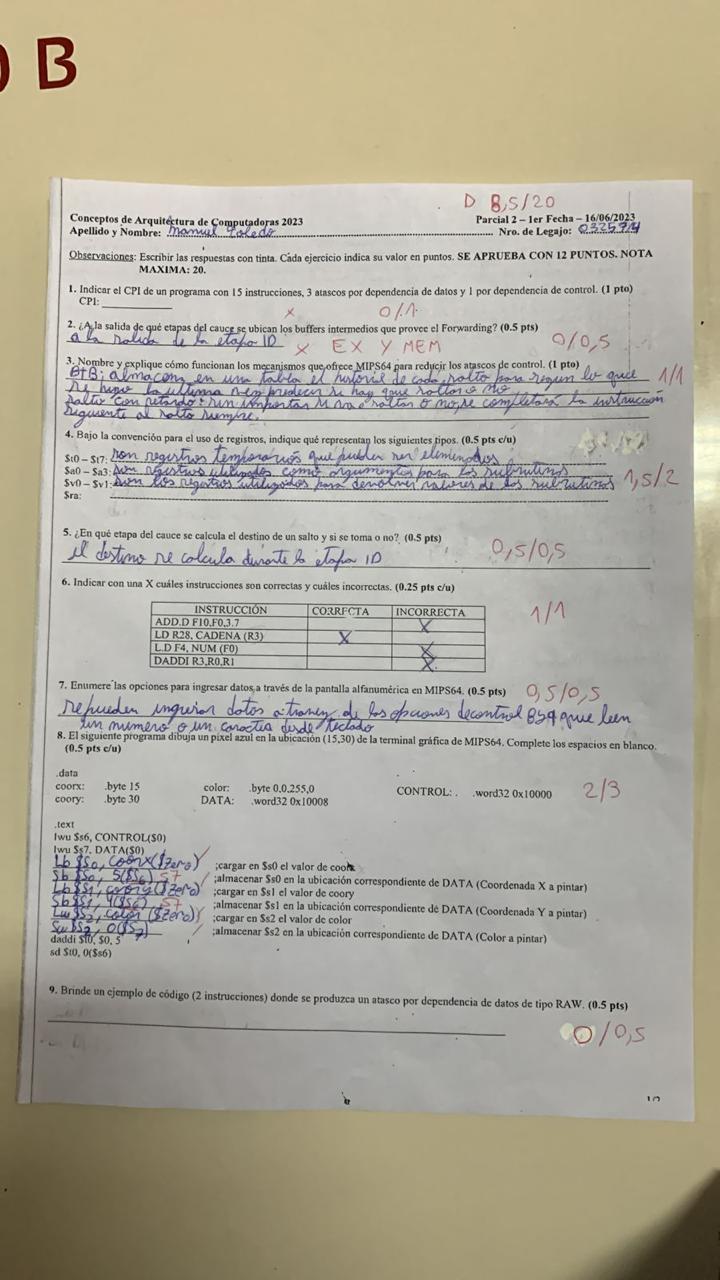 ) B
D 8,5/20
Conceptos de Arquitectura de Computadoras 2023 Parcial 2 – 1er Fecha – 16/06/2023
Apellido y Nombre: Manuel Toledo Nro. de Legajo:
Observaciones: Escribir las respuestas con tinta. Cada ejercicio indica su valor en puntos. SE APRUEBA CON 12 PUNTOS. NOTA
MAXIMA: 20.
1. Indicar el CPI de un programa con 15 instrucciones, 3 atascos por dependencia de datos y 1 por dependencia de control. (1 pto)
CPI: x 0/1
2. ¿A la salida de qué etapas del cauce se ubican los buffers intermedios que provee el Forwarding? (0.5 pts)
a la salida de la etapa ID x EX Y MEM 0/0,5
3. Nombre y explique cómo funcionan los mecanismos que ofrece MIPS64 para reducir los atascos de control. (1 pto)
BTB: almacena en una tabla el historial de cada salto para segun lo que 1/1
se hizo la ultima vez predecir si hay que saltar o no
salto con retardo: sin importar si va a saltar o no, se completará la instrucción
siguiente al salto siempre.
4. Bajo la convención para el uso de registros, indique qué representan los siguientes tipos. (0.5 pts c/u)
$t0 – $t7: son registros temporarios que pueden ser eliminados
$a0 – $a3: son registros utilizados como argumentos para las subrutinas
$v0 – $v1: son los registros utilizados para devolver valores de las subrutinas 1,5/2
$ra:
5. ¿En qué etapa del cauce se calcula el destino de un salto y si se toma o no? (0.5 pts)
el destino se calcula durante la etapa ID 0,5/0,5
6. Indicar con una X cuáles instrucciones son correctas y cuáles incorrectas. (0.25 pts c/u)
INSTRUCCIÓN CORRECTA INCORRECTA 1/1
ADD.D F10,F0,3.7 X
LD R28, CADENA (R3) X
L.D F4, NUM (F0) X
DADDI R3,R0,R1 X
7. Enumere las opciones para ingresar datos a través de la pantalla alfanumérica en MIPS64. (0.5 pts) 0,5/0,5
se pueden ingresar datos a traves de las opciones de control 8 y 9 que leen
un numero o un caracter desde teclado
8. El siguiente programa dibuja un pixel azul en la ubicación (15,30) de la terminal gráfica de MIPS64. Complete los espacios en blanco.
(0.5 pts c/u)
.data
coorx: .byte 15 color: .byte 0,0,255,0 CONTROL: . .word32 0x10000 2/3
coory: .byte 30 DATA: .word32 0x10008
.text
lwu $s6, CONTROL($0)
lwu $s7, DATA($0)
Lb $S0, coorx($zero) ;cargar en $s0 el valor de coorx
Sb $S0, 5($S6) S7 ;almacenar $s0 en la ubicación correspondiente de DATA (Coordenada X a pintar)
Lb $S1, coory($zero) ;cargar en $s1 el valor de coory
Sb $S1, 4($S6) S7 ;almacenar $s1 en la ubicación correspondiente de DATA (Coordenada Y a pintar)
Lw $S2, color ($zero) ;cargar en $s2 el valor de color
Sw $S2, 0($S7) ;almacenar $s2 en la ubicación correspondiente de DATA (Color a pintar)
daddi $t0, $0, 5
sd $t0, 0($s6)
9. Brinde un ejemplo de código (2 instrucciones) donde se produzca un atasco por dependencia de datos de tipo RAW. (0.5 pts)
0/0,5